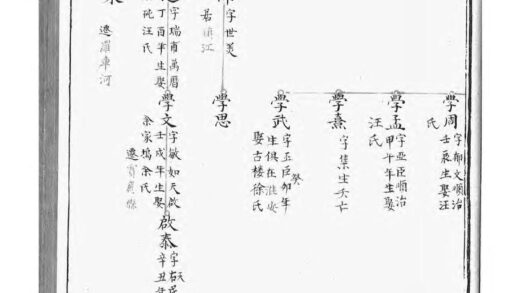 學周
字郁文順治
壬辰生娶汪
氏
學孟
字亞臣順治
甲午年生娶
汪氏
學熹
字集生夭亡
學武
字五臣卯年
癸
生俱在淮安
娶古楼徐氏
學思
字世美
學文
字敏如天啟
壬戌年生娶
余家塢余氏
遷
字瑞甫萬曆
丁酉年生娶
汪氏
啟泰
天
辛丑
遷羅車河